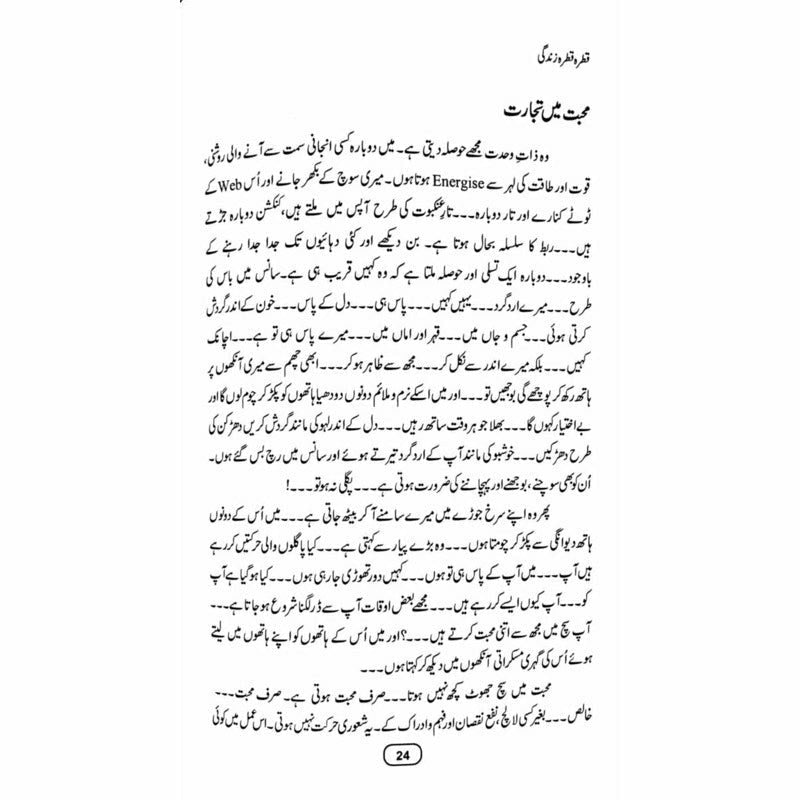 قطرہ قطرہ زندگی
محبت میں تجارت
وہ ذاتِ وحدت مجھے حوصلہ دیتی ہے۔ میں دوبارہ کسی انجانی سمت سے آنے والی روشنی،
قوت اور طاقت کی لہر سے Energise ہوتا ہوں۔ میری سوچ کے بکھر جانے اور اُس Web کے
ٹوٹے کنارے اور تار دوبارہ۔۔۔تارِعنکبوت کی طرح آپس میں ملتے ہیں، کنکشن دوبارہ جڑتے
ہیں۔۔۔ربط کا سلسلہ بحال ہوتا ہے۔ بن دیکھے اور کئی دہائیوں تک جدا جدا رہنے کے
باوجود۔۔۔دوبارہ ایک تسلی اور حوصلہ ملتا ہے کہ وہ کہیں قریب ہی ہے۔سانس میں باس کی
طرح۔۔۔میرے اردگرد۔۔۔یہیں کہیں۔۔۔پاس ہی۔۔۔دل کے پاس۔۔۔خون کے اندر گردش
کرتی ہوئی۔۔۔جسم و جاں میں۔۔۔قہر اور اماں میں۔۔۔میرے پاس ہی تو ہے۔۔۔اچانک
کہیں۔۔۔بلکہ میرے اندر سے نکل کر۔۔۔مجھ سے ظاہر ہو کر۔۔۔ابھی چھم سے میری آنکھوں پر
ہاتھ رکھ کر پوچھے گی بوجھیں تو۔۔۔اور میں اسکے نرم و ملائم دونوں دودھیا ہاتھوں کو پکڑ کر چوم لوں گا اور
بے اختیار کہوں گا۔۔۔بھلا جو ہر وقت ساتھ رہیں۔۔۔دل کے اندر لہو کی مانند گردش کریں دھڑکن کی
طرح دھڑکیں۔۔۔خوشبو کی مانند آپ کے اردگرد تیرتے ہوئے اور سانس میں رچ بس گئے ہوں۔
اُن کو بھی سوچنے، بوجھنے اور پہچاننے کی ضرورت ہوتی ہے۔۔۔پگلی نہ ہو تو۔۔۔!
پھر وہ اپنے سرخ جوڑے میں میرے سامنے آ کر بیٹھ جاتی ہے۔۔۔میں اُس کے دونوں
ہاتھ دیوانگی سے پکڑ کر چومتا ہوں۔۔۔وہ بڑے پیار سے کہتی ہے۔۔۔کیا پاگلوں والی حرکتیں کر رہے
ہیں آپ۔۔۔میں آپ کے پاس ہی تو ہوں۔۔۔کہیں دور تھوڑی جا رہی ہوں۔۔۔کیا ہو گیا ہے آپ
کو۔۔۔آپ کیوں ایسے کر رہے ہیں۔۔۔مجھے بعض اوقات آپ سے ڈر لگنا شروع ہو جاتا ہے۔۔۔
آپ سچ میں مجھ سے اتنی محبت کرتے ہیں۔۔۔؟ اور میں اُس کے ہاتھوں کو اپنے ہاتھوں میں لیتے
ہوئے اُس کی گہری مسکراتی آنکھوں میں دیکھ کر کہتا ہوں۔۔۔
محبت میں سچ جھوٹ کچھ نہیں ہوتا۔۔۔صرف محبت ہوتی ہے۔ صرف محبت۔۔۔
خالص۔۔۔بغیر کسی لالچ، نفع نقصان اور فہم و ادراک کے۔ یہ شعوری حرکت نہیں ہوتی۔ اس عمل میں کوئی
24